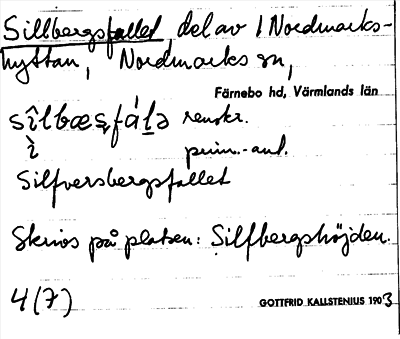 Sillbergsfallet del av 1 Nordmarks-
hyttan, Nordmarks sn,
Färnebo hd, Värmlands län
sîlbæsfálə renskr.
ì prim.-ant.
Silfversbergsfallet
Skrivs på platsen: Silfbergshöjden.
4 (7)
GOTTFRID KALLSTENIUS 1903